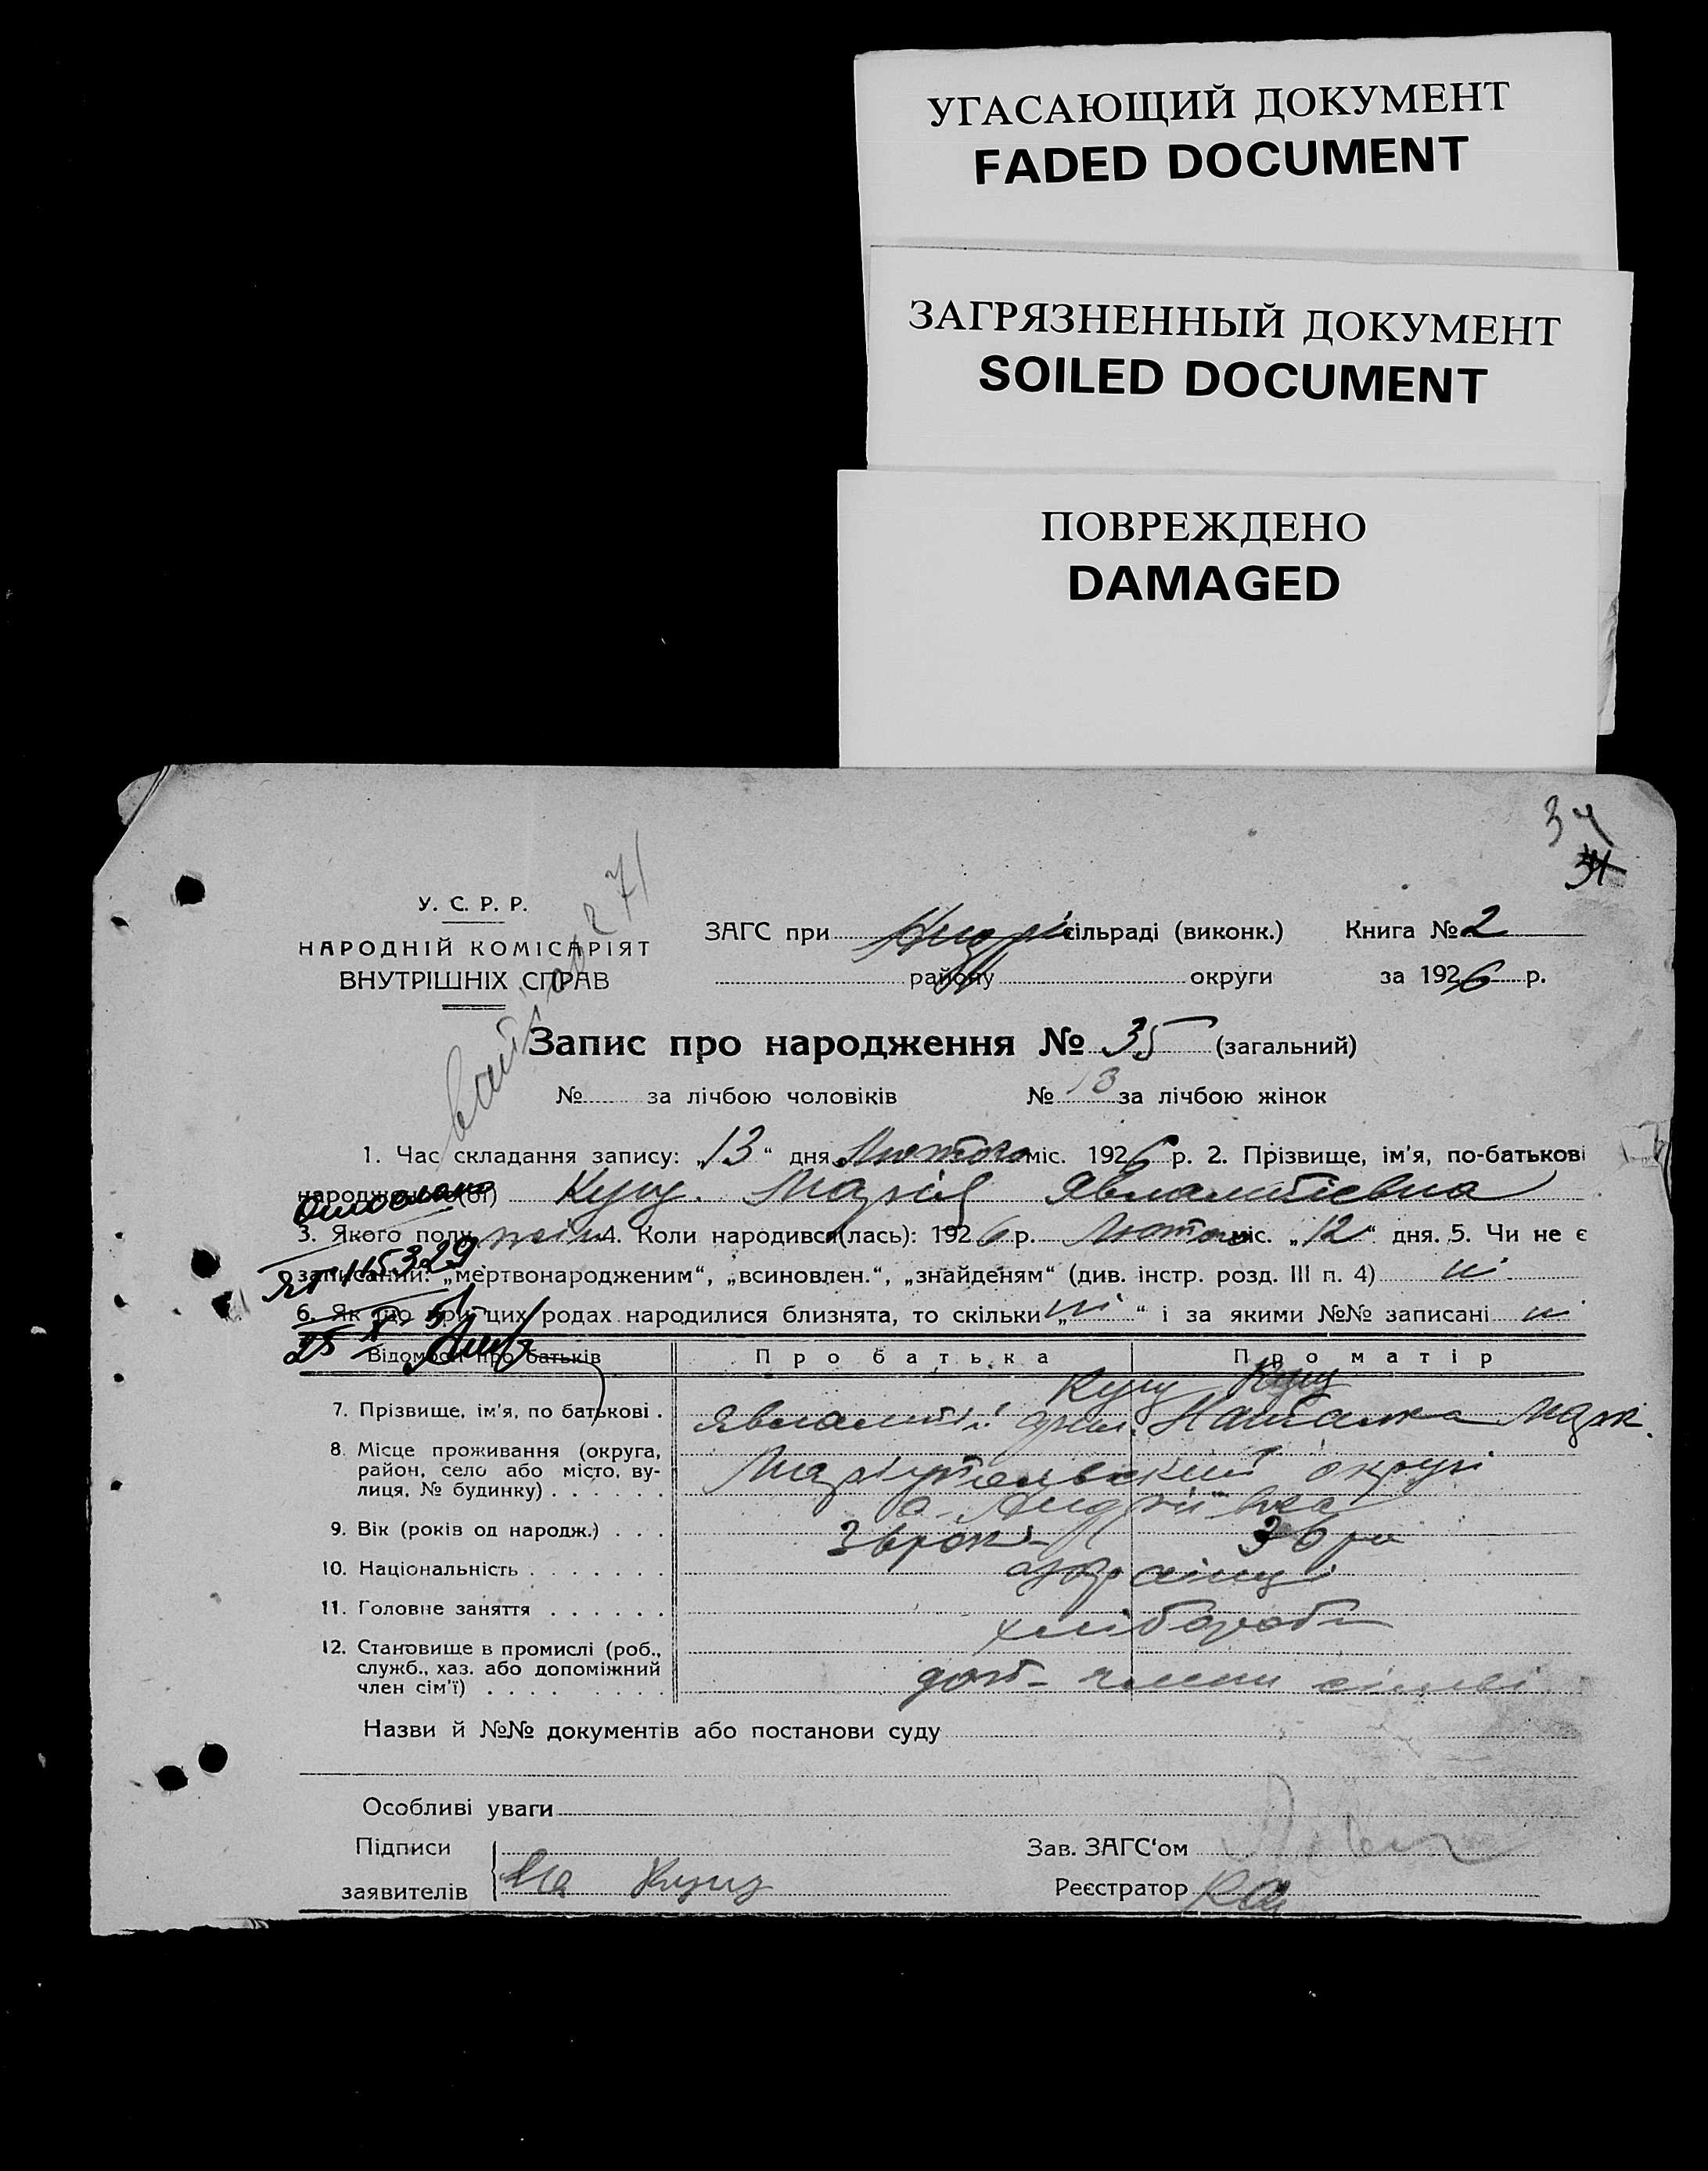 УГАСАЮЩИЙ ДОКУМЕНТ
FADED DOCUMENT
ЗАГРЯЗНЕННЫЙ ДОКУМЕНТ
SOILED DOCUMENT
ПОВРЕЖДЕНО
DAMAGED
34
У. С. Р. Р.
НАРОДНІЙ КОМІСАРІЯТ
ВНУТРІШНІХ СПРАВ
ЗАГС при сільраді (виконк.) Книга № 2
району округи за 1926 р.
Запис про народження № 35 (загальний)
№ за лічбою чоловіків № 13 за лічбою жінок
1. Час складання запису: „13“ дня Лютого міс. 1926 р. 2. Прізвище, ім'я, по-батькові
Куцу. Марія Явлампієвна
3. Якого полу жін 4. Коли народився(лась): 1926 р. Лютого міс. „12“ дня. 5. Чи не є
записаний: „мертвонародженим“, „всиновлен.“, „знайденям“ (див. інстр. розд. III п. 4) ні
ЯГ 115329
6. Як що при цих родах народилися близнята, то скільки „ні“ і за якими №№ записані ні
25 X 5
Відомости про батьків Про батька Про матір
Куцу
7. Прізвище, ім'я, по батькові . Явлампій Наталка Марк.
8. Місце проживання (округа, район, село або місто, вулиця, № будинку) . . . . . . Маріупольської округи
с. Андріївка
9. Вік (років од народж.) . . . 36 рок. 36 ро
10. Національність . . . . . . . українці
11. Головне заняття . . . . . . хлібороби
12. Становище в промислі (роб., служб., хаз. або допоміжний член сім'ї) . . . . . . . . доп- члени сімьі
Назви й №№ документів або постанови суду
Особливі уваги
Підписи Зав. ЗАГС‘ом
заявителів Куцу Реєстратор